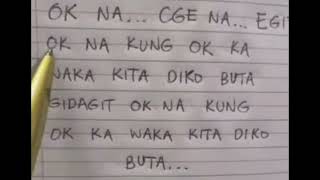 OK NA... CGE NA... EGIT
OK NA KUNG OK KA
WAKA KITA DIKO BUTA
GIDAGIT OK NA KUNG
OK KA WAKA KITA DIKO
BUTA...